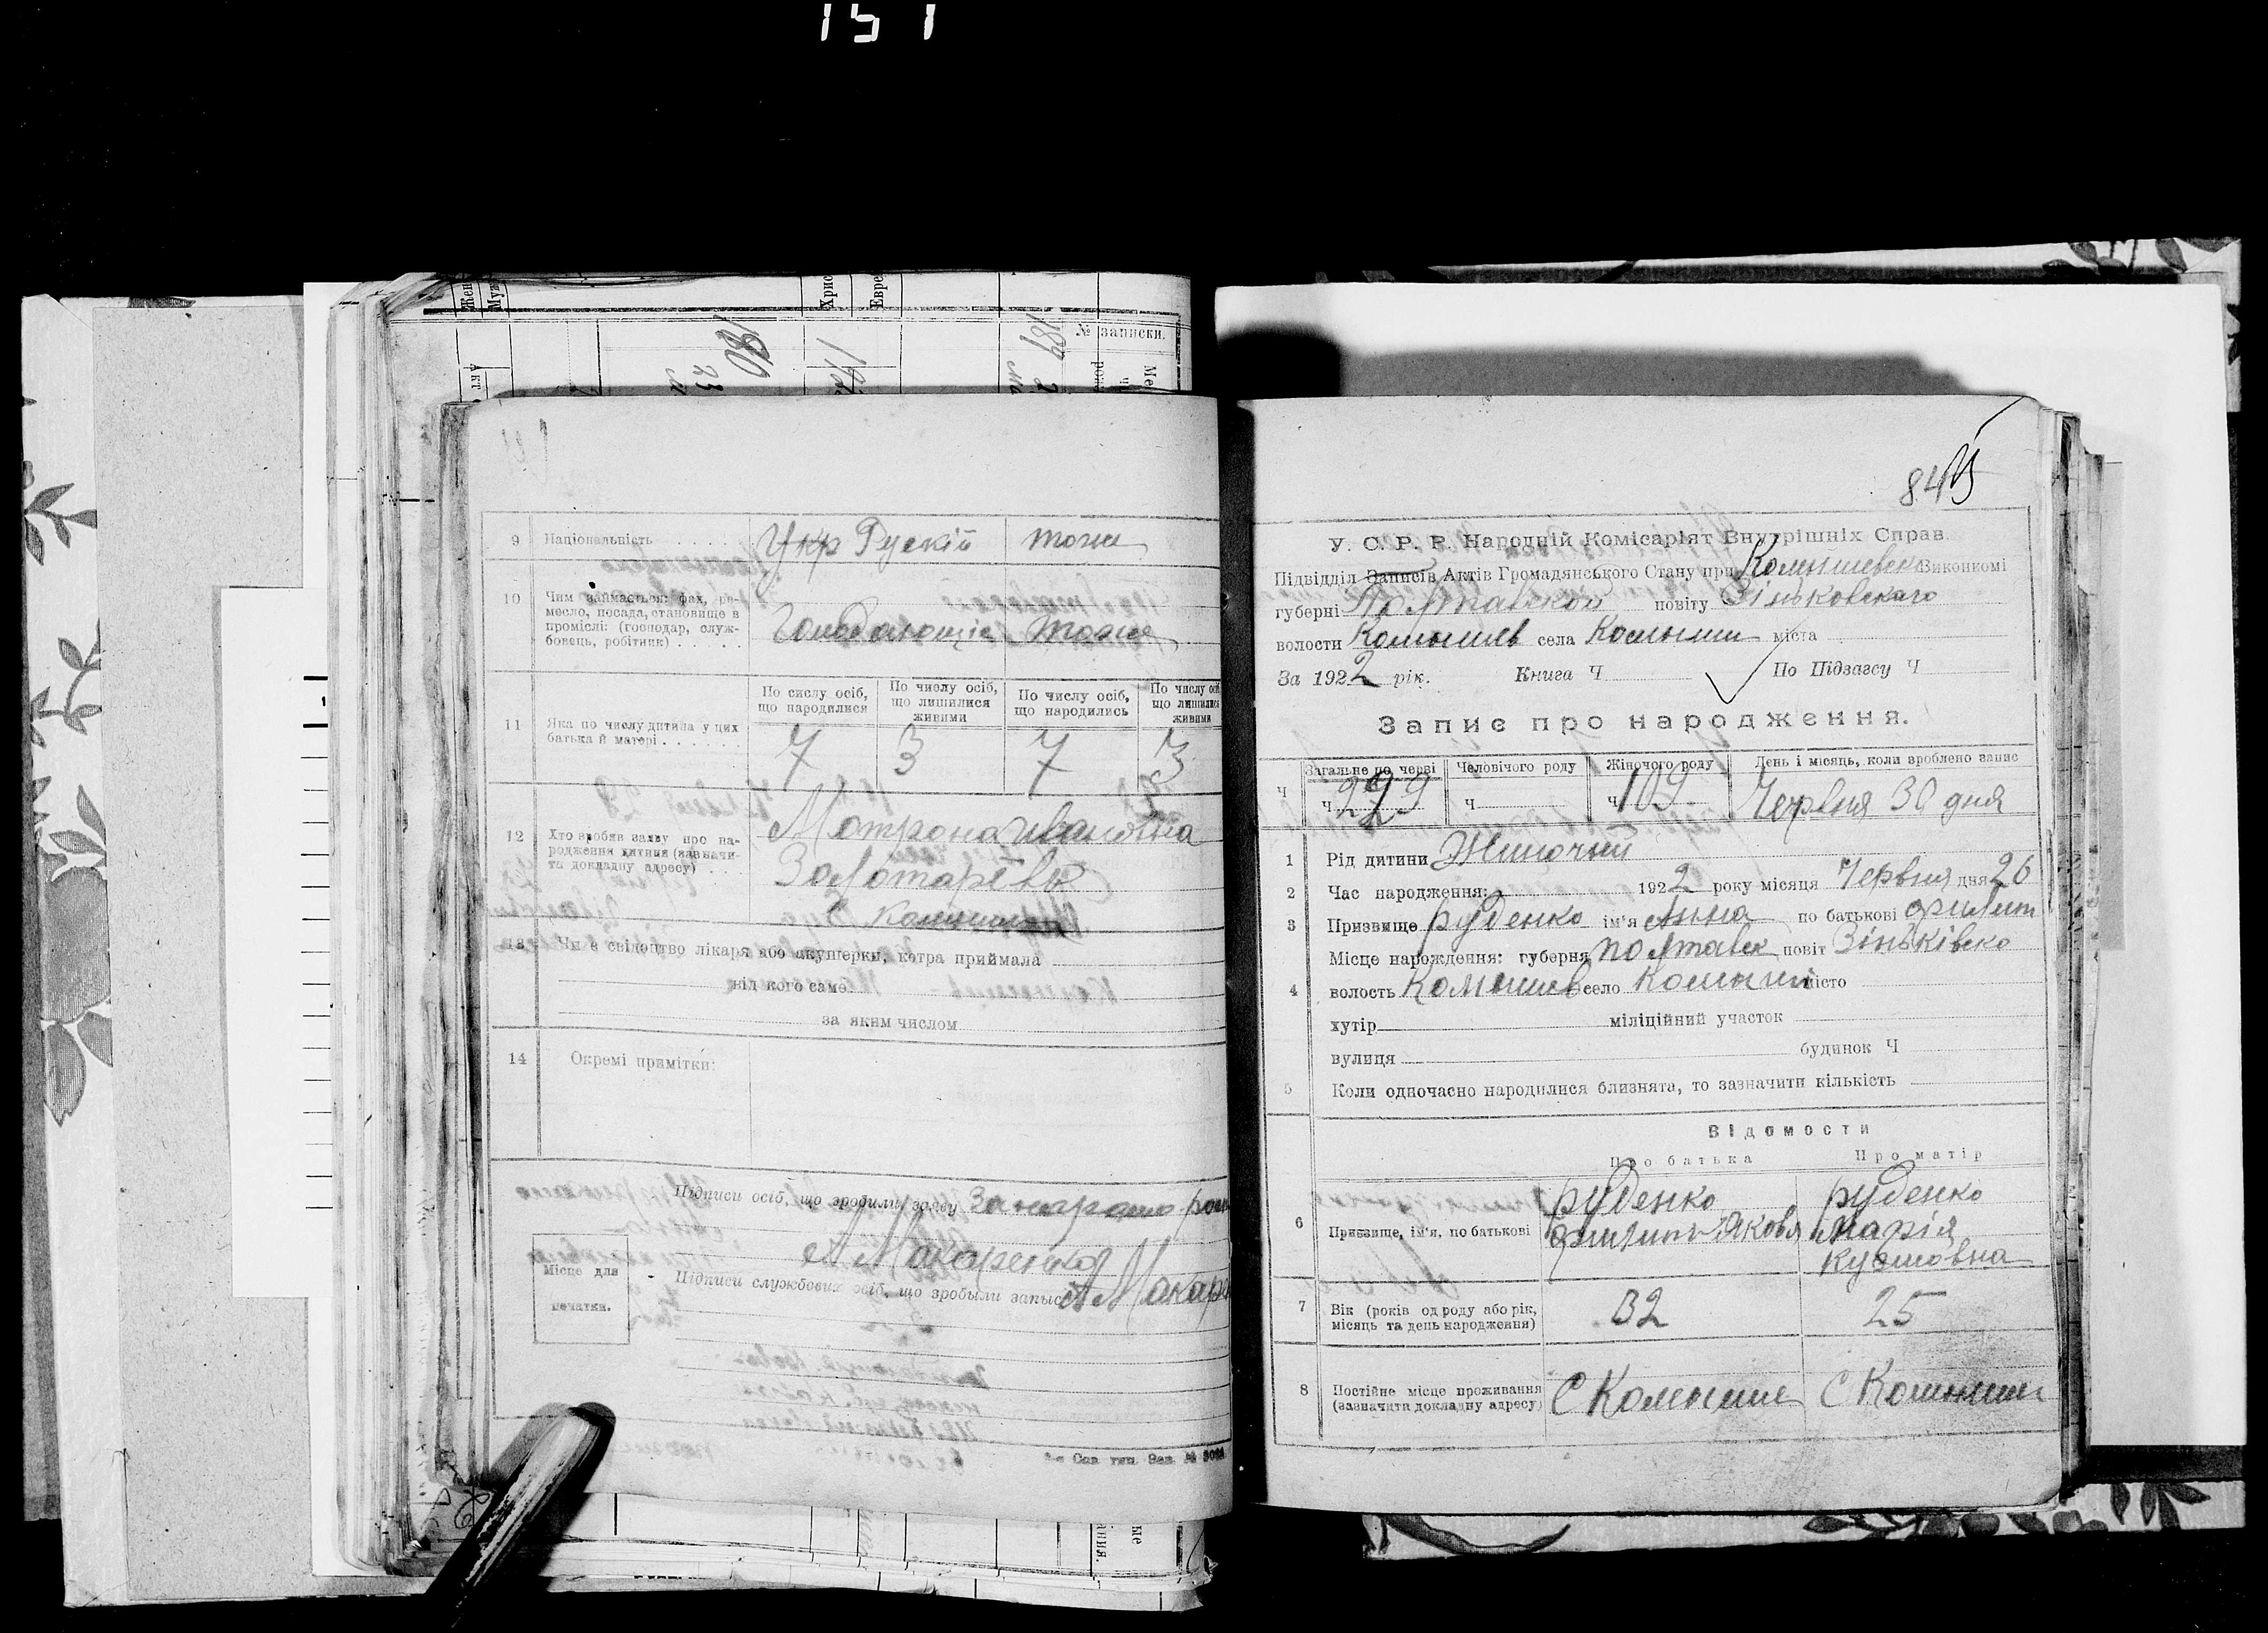 151
Жен
Муж
Хрис
Евре
№ записки.
189
190
9 Національність Укр Рускій тоже
10 Чим займається: фах, ре-
месло, посада, становище в
промислі: (господар, служ-
бовець, робітник) тоже
По числу осіб, що народилися
По числу осіб, що лишилися живими
По числу осіб, що народились
По числу осіб що лишилися живими
11 Яка по числу дитина у цих
батька й матері 7 3 7 3
12 Хто зробив заяву про на-
родження дитини (зазначи-
ти докладну адресу)
Мотрона Ивановна
Золотарёвы
13 Чи є свідоцтво лікаря або акушерки, котра приймала
від кого саме
за яким числом
14 Окремі примітки:
Підписи осіб, що зробили заяву
А Макаренко
Місце для
печатки.
Підписи службових осіб, що зробыли запыс А Макаре
845
У. С. Р. Р. Народній Комісаріят Внутрішніх Справ.
Підвідділ Записів Актів Громадянського Стану при Комышевск Виконкомі
губерні Полтавской повіту Зіньковскаго
волости Комышев села Комыши міста
За 1922 рік. Книга Ч По Підзагсу Ч
Запис про народження.
Загальне по черві Человічого роду Жіночого роду День і місяць, коли зроблено запис
Ч ч 229 ч ч 109 Червня 30 дня
1 Рід дитини Жиночий
2 Час народження: 1922 року місяця Червня дня 26
3 Призвище Руденко ім'я Анна по батькові Филип
Місце нарождення: губерня Полтавск повіт Зіньківско
4 волость Комышев село Комыши місто
хутір міліційний участок
вулиця будинок Ч
5 Коли одночасно народилися близнята, то зазначити кількість
Відомости
Про батька Про матір
6 Призвище, ім'я, по батькові
Руденко
Филипп Яковл
Руденко
Марія
Кузмовна
7 Вік (років од роду або рік,
місяць та день народження) 32 25
8 Постійне місце проживання
(зазначити докладну адресу) С Комыши С Комыши